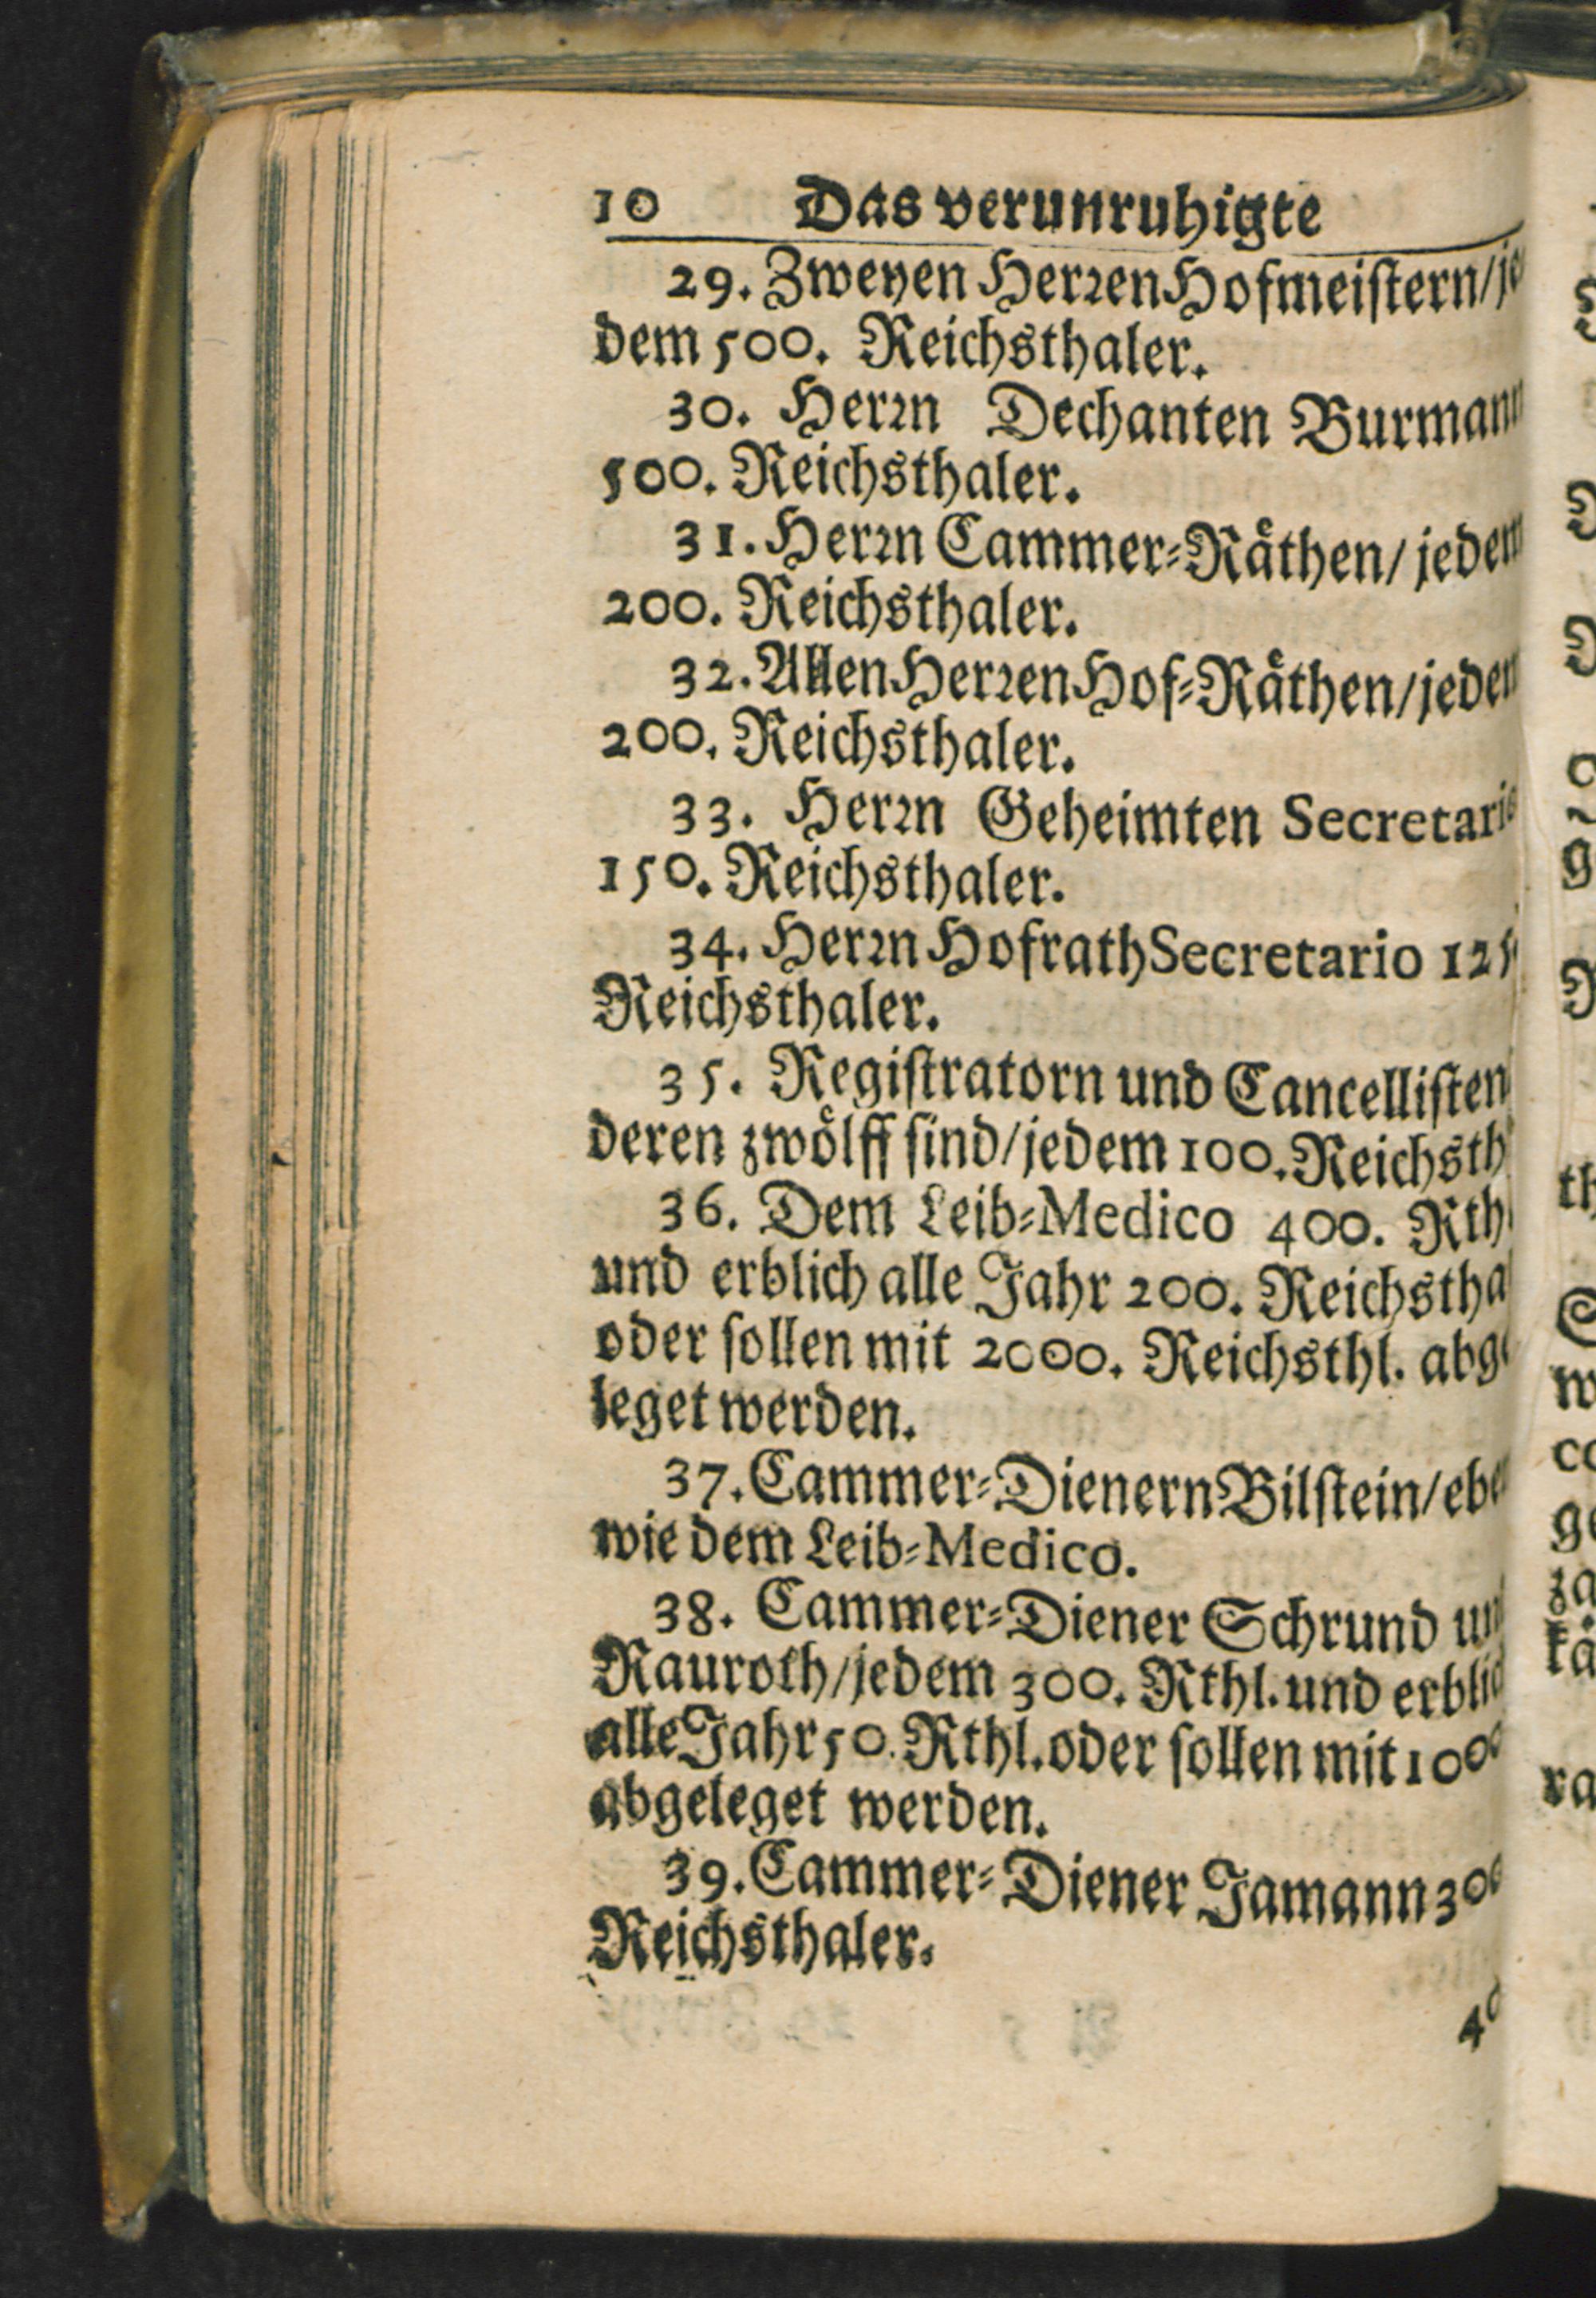 10 Das verunruhigte
29. Zweyen Herꝛen Hofmeiſtern/ je
dem 500. Reichsthaler.
30. Herꝛn Dechanten Burmann
500. Reichsthaler.
31. Herꝛn Cammer⸗Raͤthen/ jedem
200. Reichsthaler.
32. Allen Herꝛen Hof⸗Raͤthen/ jedem
200. Reichsthaler.
33. Herꝛn Geheimten Secretario
150. Reichsthaler.
34. Herꝛn Hofrath Secretario 125
Reichsthaler.
35. Regiſtratorn und Cancelliſten
deren zwoͤlff ſind/ jedem 100. Reichsth
36. Dem Leib⸗Medico 400. Rthl
und erblich alle Jahr 200. Reichstha
oder ſollen mit 2000. Reichsthl. abge
leget werden.
37. Cammer⸗Dienern Bilſtein/ eben
wie dem Leib⸗Medico.
38. Cammer⸗Diener Schrund und
Rauroth/ jedem 300. Rthl. und erblich
alle Jahr 50. Rthl. oder ſollen mit 1000
abgeleget werden.
39. Cammer⸗Diener Jamann 300
Reichsthaler.
40